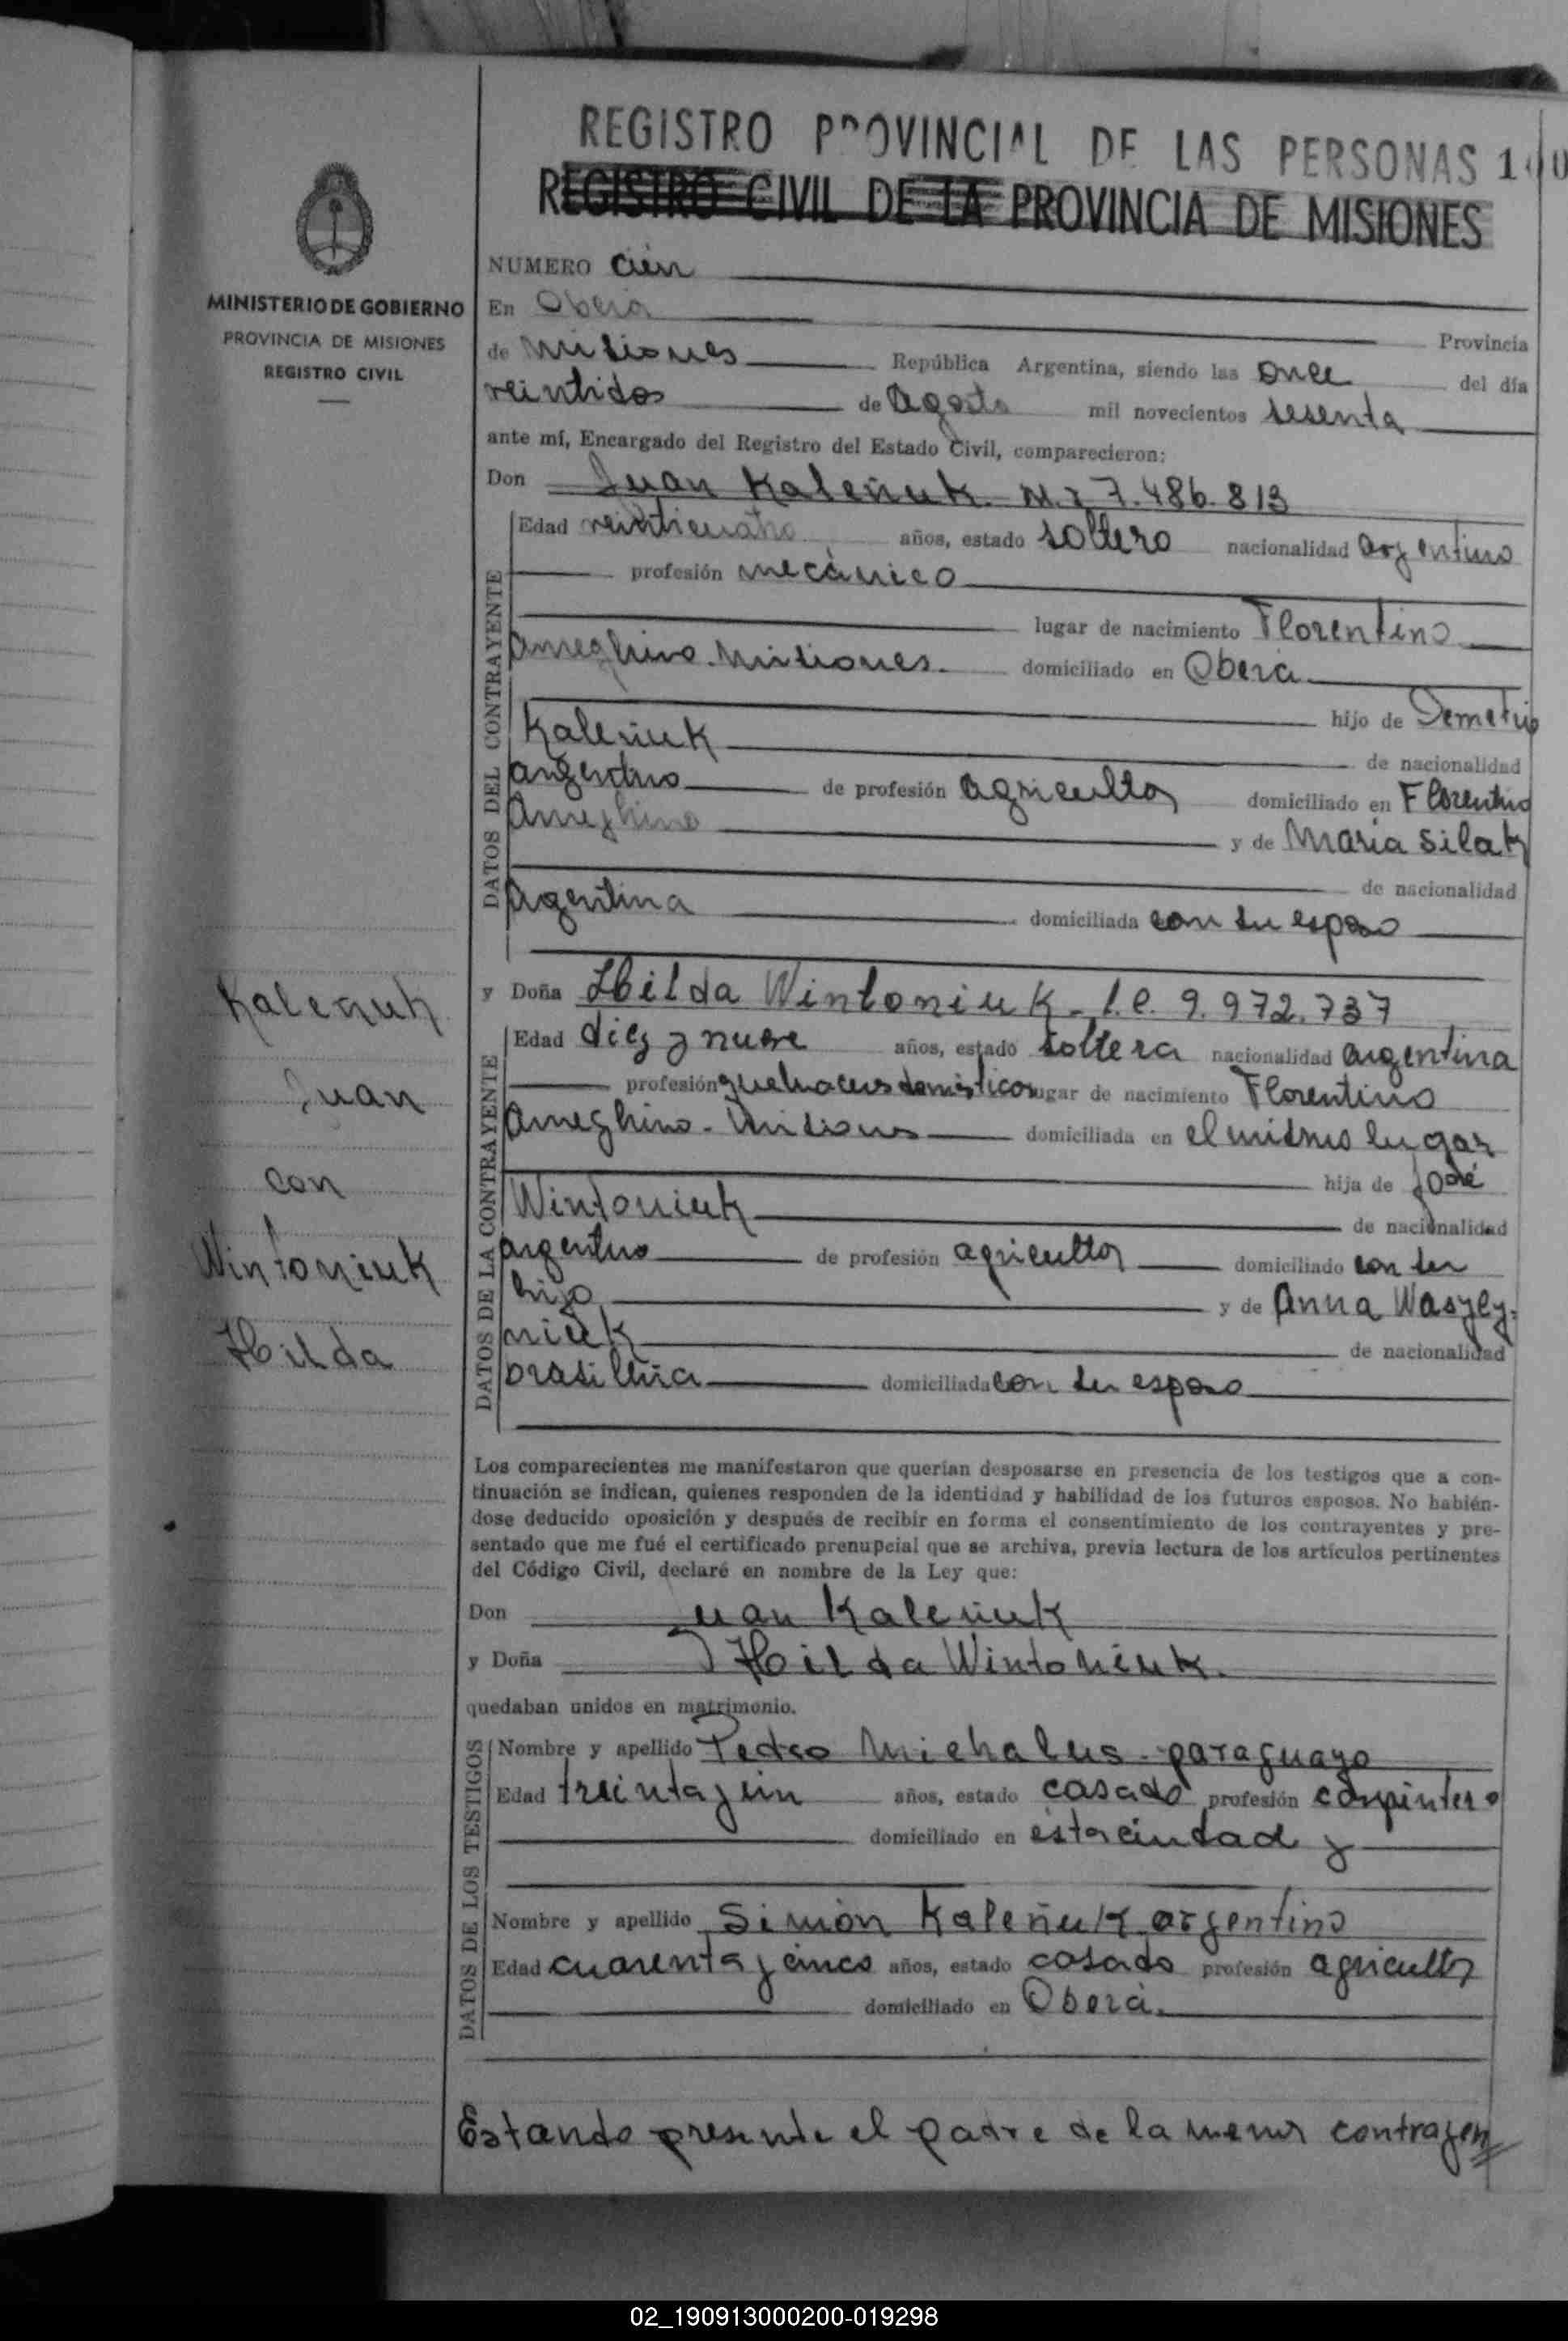 REGISTRO PROVINCIAL DE LAS PERSONAS 100
REGISTRO CIVIL DE LA PROVINCIA DE MISIONES
MINISTERIO DE GOBIERNO
PROVINCIA DE MISIONES
REGISTRO CIVIL
NUMERO cien
En Oberá
Provincia
de Misiones República Argentina, siendo las once del día
veintidos de Agosto mil novecientos sesenta
ante mí, Encargado del Registro del Estado Civil, comparecieron:
Don Juan Kaleñuk. M.I 7.486.813
DATOS DEL CONTRAYENTE
Edad veinticuatro años, estado soltero nacionalidad argentino
profesión mecánico
lugar de nacimiento Florentino
Ameghino. Misiones. domiciliado en Oberá
hijo de Demetrio
Kaleñuk de nacionalidad
argentino de profesión agricultor domiciliado en Florentino
Ameghino y de María Silak
de nacionalidad
Argentina domiciliada con su esposo
Kaleñuk
Juan
con
Wintoniuk
Hilda
y Doña Hilda Wintoniuk - l.c. 9.972.737
DATOS DE LA CONTRAYENTE
Edad diez y nueve años, estado soltera nacionalidad argentina
profesión quehaceres domésticos lugar de nacimiento Florentino
Ameghino - Misiones domiciliada en el mismo lugar
hija de José
Wintoniuk de nacionalidad
argentino de profesión agricultor domiciliado con su
hija y de Anna Wasyley-
niuk de nacionalidad
brasilera domiciliada con su esposo
Los comparecientes me manifestaron que querían desposarse en presencia de los testigos que a con-
tinuación se indican, quienes responden de la identidad y habilidad de los futuros esposos. No habién-
dose deducido oposición y después de recibir en forma el consentimiento de los contrayentes y pre-
sentado que me fué el certificado prenupcial que se archiva, previa lectura de los artículos pertinentes
del Código Civil, declaré en nombre de la Ley que:
Don Juan Kaleñuk
y Doña Hilda Wintoniuk.
quedaban unidos en matrimonio.
DATOS DE LOS TESTIGOS
Nombre y apellido Pedro Michalus - paraguayo
Edad treinta y un años, estado casado profesión carpintero
domiciliado en esta ciudad y
Nombre y apellido Simón Kaleñuk argentino
Edad cuarenta y cinco años, estado casado profesión agricultor
domiciliado en Oberá.
Estando presente el padre de la menor contrayen
02_190913000200-019298